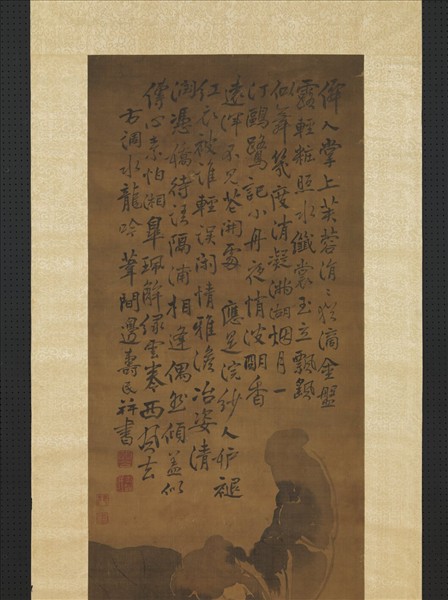 僊人掌上芙蓉涓〻猶滴金盤
露輕粧照水纖裳玉立飄飖
似舞幾度消凝滿湖烟月一
汀鷗鷺記小舟夜悄波明香
遠渾不見花開處 應是浣紗人妒褪
紅衣被誰輕誤閒情雅澹冶姿清
潤憑嬌待語隔浦相逢偶然傾蓋似
傳心素怕湘皋珮解綠雲卷西風去
右調水龍吟 葦間邊壽民并書